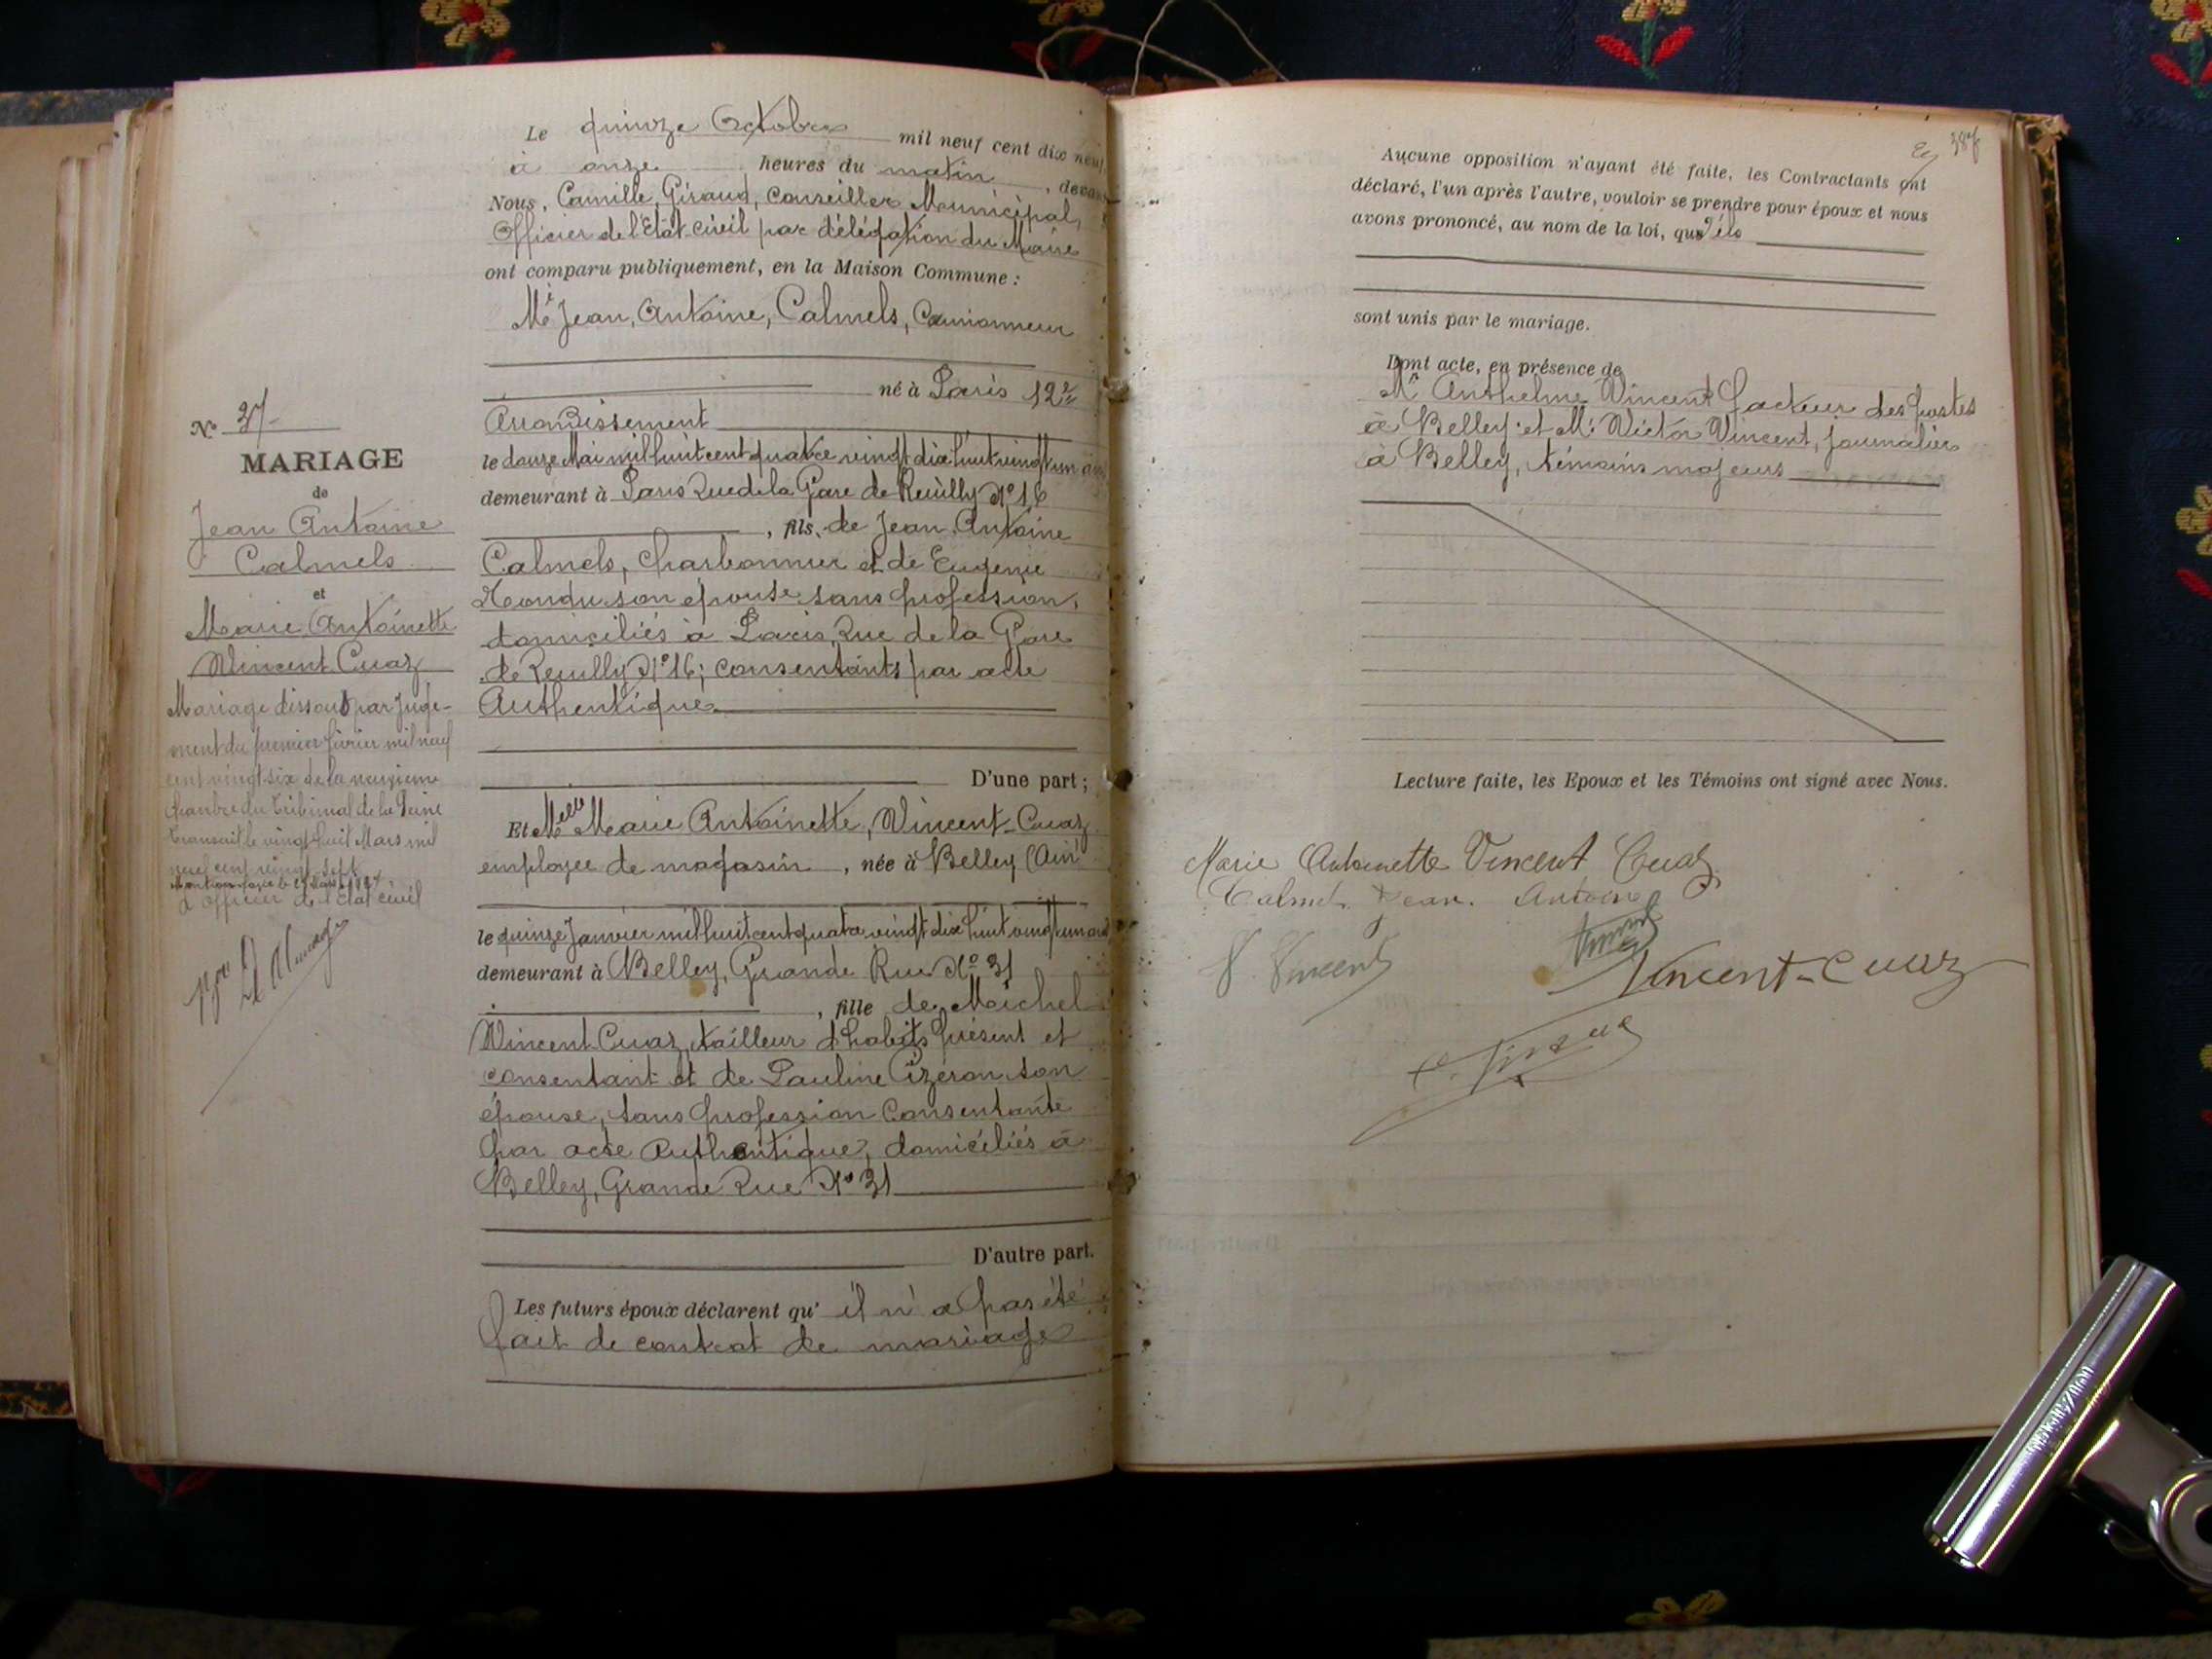 Le quinze Octobre mil neuf cent dix neuf
à onze heures du matin, devant
Nous, Camille Giraud, Conseiller Municipal,
Officier de l'Etat-civil par délégation du Maire
ont comparu publiquement, en la Maison Commune :
Mr Jean, Antoine, Calmels, Camionneur
né à Paris 12e
Arrondissement
le douze Mai mil huit cent quatre vingt dix huit vingt un ans
demeurant à Paris Rue de la Gare de Reuilly No 16
, fils de Jean Antoine
Calmels, Charbonnier et de Eugenie
son épouse sans profession,
domiciliés à Paris, Rue de la Gare
de Reuilly No 16; consentants par acte
Authentique
D'une part ;
Et Melle Marie Antoinette, Vincent-Cuaz
employee de magasin, née à Belley (Ain
le quinze Janvier mil huit cent quatre vingt dix huit vingt un ans
demeurant à Belley, Grande Rue No 31
, fille de Michel
Vincent-Cuaz, tailleur d'habits présent et
consentant et de Pauline Cizeron son
épouse, sans profession Consentante
par acte Authentique, domiciliés à
Belley, Grande Rue No 31
D'autre part.
Les futurs époux déclarent qu' il n'a pas été
fait de contrat de mariage
No 37
MARIAGE
de
Jean Antoine
Calmels
et
Marie Antoinette
Vincent Cuaz
Mariage dissout par juge-
ment du premier février mil neuf
cent vingt-six de la
chambre du tribunal de la Seine
transcrit le vingt huit Mars mil
neuf cent vingt-sept
Mention faite le Mars
L'Officier de l'Etat civil
387
Aucune opposition n'ayant été faite, les Contractants ont
déclaré, l'un après l'autre, vouloir se prendre pour époux et nous
avons prononcé, au nom de la loi, qu'ils
sont unis par le mariage.
Dont acte, en présence de
Mr Anthelme Vincent facteur des postes
à Belley et Mr Victor Vincent, journalier
à Belley, témoins majeurs
Lecture faite, les Epoux et les Témoins ont signé avec Nous.
Marie Antoinette Vincent Cuaz
Calmels Jean Antoine
V. Vincent
Vincent-Cuaz
C. Giraud